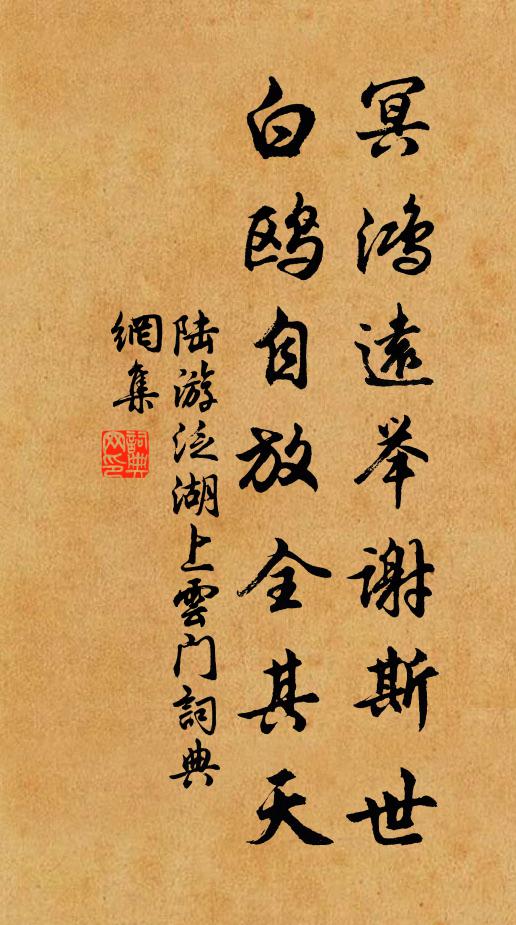 冥鴻遠举謝斯世
白鸥自放全其天
陆游泛湖上雲门詞典
網集
詞典网印